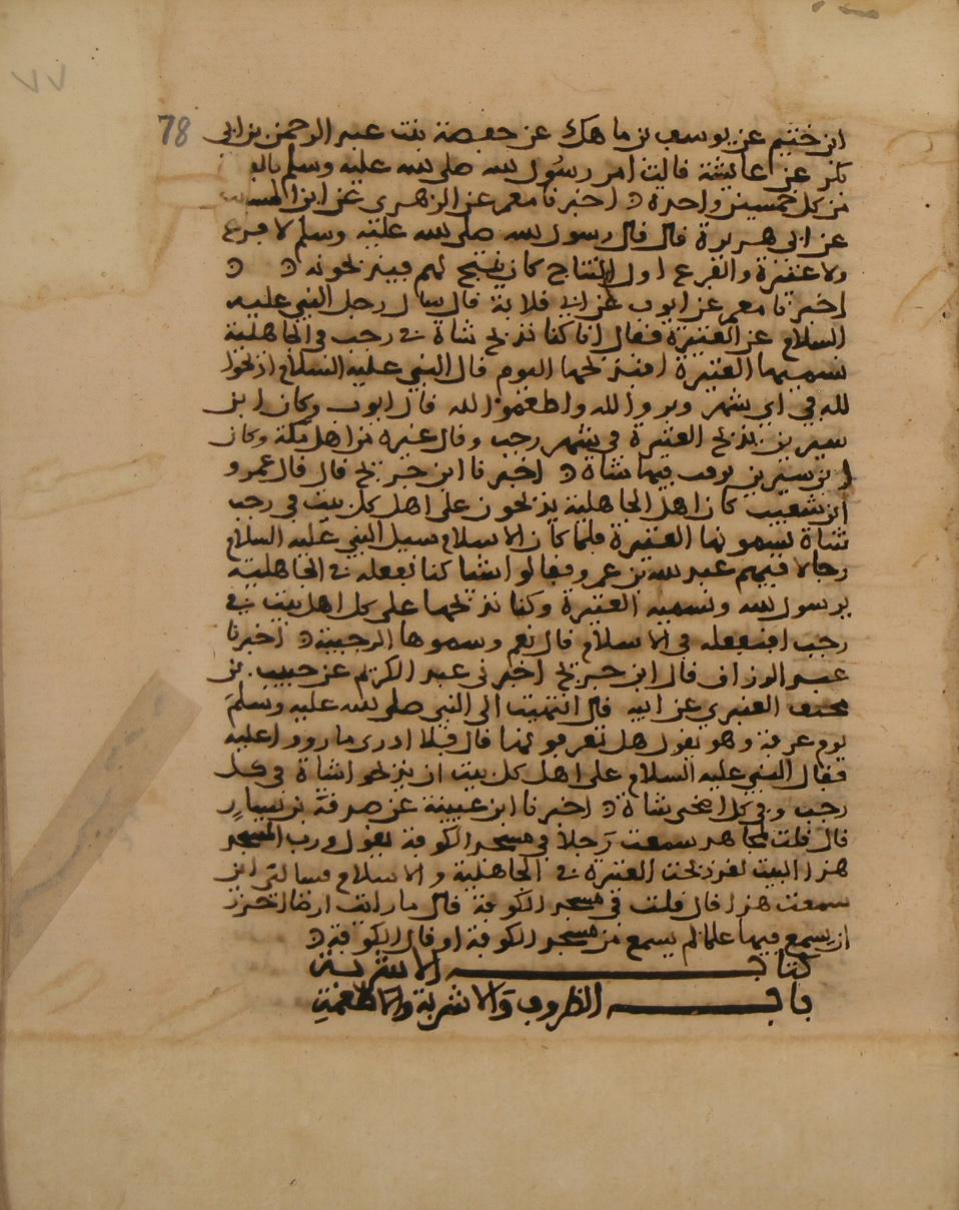 ٧٧
78
ابن خثيم عن يوسف بن ماهك عن حفصة بنت عبد الرحمن بن ابي
بكر عن عايشة قالت امر رسول الله صلى الله عليه وسلم بالفرع
من كل خمسين واحدة اخبرنا معمر عن الزهري عن ابن المسيب
عن ابي هريرة قال قال رسول الله صلى الله عليه وسلم لا فرع
ولا عتيرة والفرع اول النتاج كان ينتج لهم فيذبحونه
اخبرنا معمر عن ايوب عن ابي قلابة قال سال رجل النبي عليه
السلام عن العتيرة فقال انا كنا نذبح شاة في رجب في الجاهلية
نسميها العتيرة افنذبحها اليوم قال النبي عليه السلام اذبحوا
لله في اي شهر وبروا لله واطعموا لله قال ايوب وكان ابن
سيرين يذبح العتيرة في شهر رجب وقال غيره من اهل مكة وكان
ابن سيرين يرمي فيها شاة اخبرنا ابن جريج قال قال عمرو
ابن شعيب كان اهل الجاهلية يذبحون على اهل كل بيت في رجب
شاة يسمونها العتيرة فلما كان الاسلام سيل النبي عليه السلام
رجالا فيهم عبد الله بن عمرو فقالوا اشيا كنا نفعله في الجاهلية
يرسول الله ونسميه العتيرة وكنا نذبحها على كل اهل بيت في
رجب افنفعله في الاسلام قال نعم وسموها الرجبية اخبرنا
عبد الرزاق قال ابن جريج اخبرني عبد الكريم عن حبيب بن
مخنف العنبري عن ابيه قال انتهيت الى النبي صلى الله عليه وسلم
يوم عرفة وهو يقول هل تعرفونها قال فلا ادري ما ردوا عليه
فقال النبي عليه السلام على اهل كل بيت ان يذبحوا شاة في كل
رجب وفي كل اضحى شاة اخبرنا ابن عيينة عن صدقة بن يسار
قال قلت لمجاهد سمعت رجلا في مسجد الكوفة يقول ورب المسجد
هذا البيت لقد ذبحت العتيرة في الجاهلية والاسلام فسالني اين
سمعت هذا قال قلت في مسجد الكوفة قال ما رايت ارضا اجدر
ان يسمع فيها علما لم يسمع من مسجد الكوفة او قال الكوفة
كتاب الاشربة
باب الظروف والاشربة والاطعمة